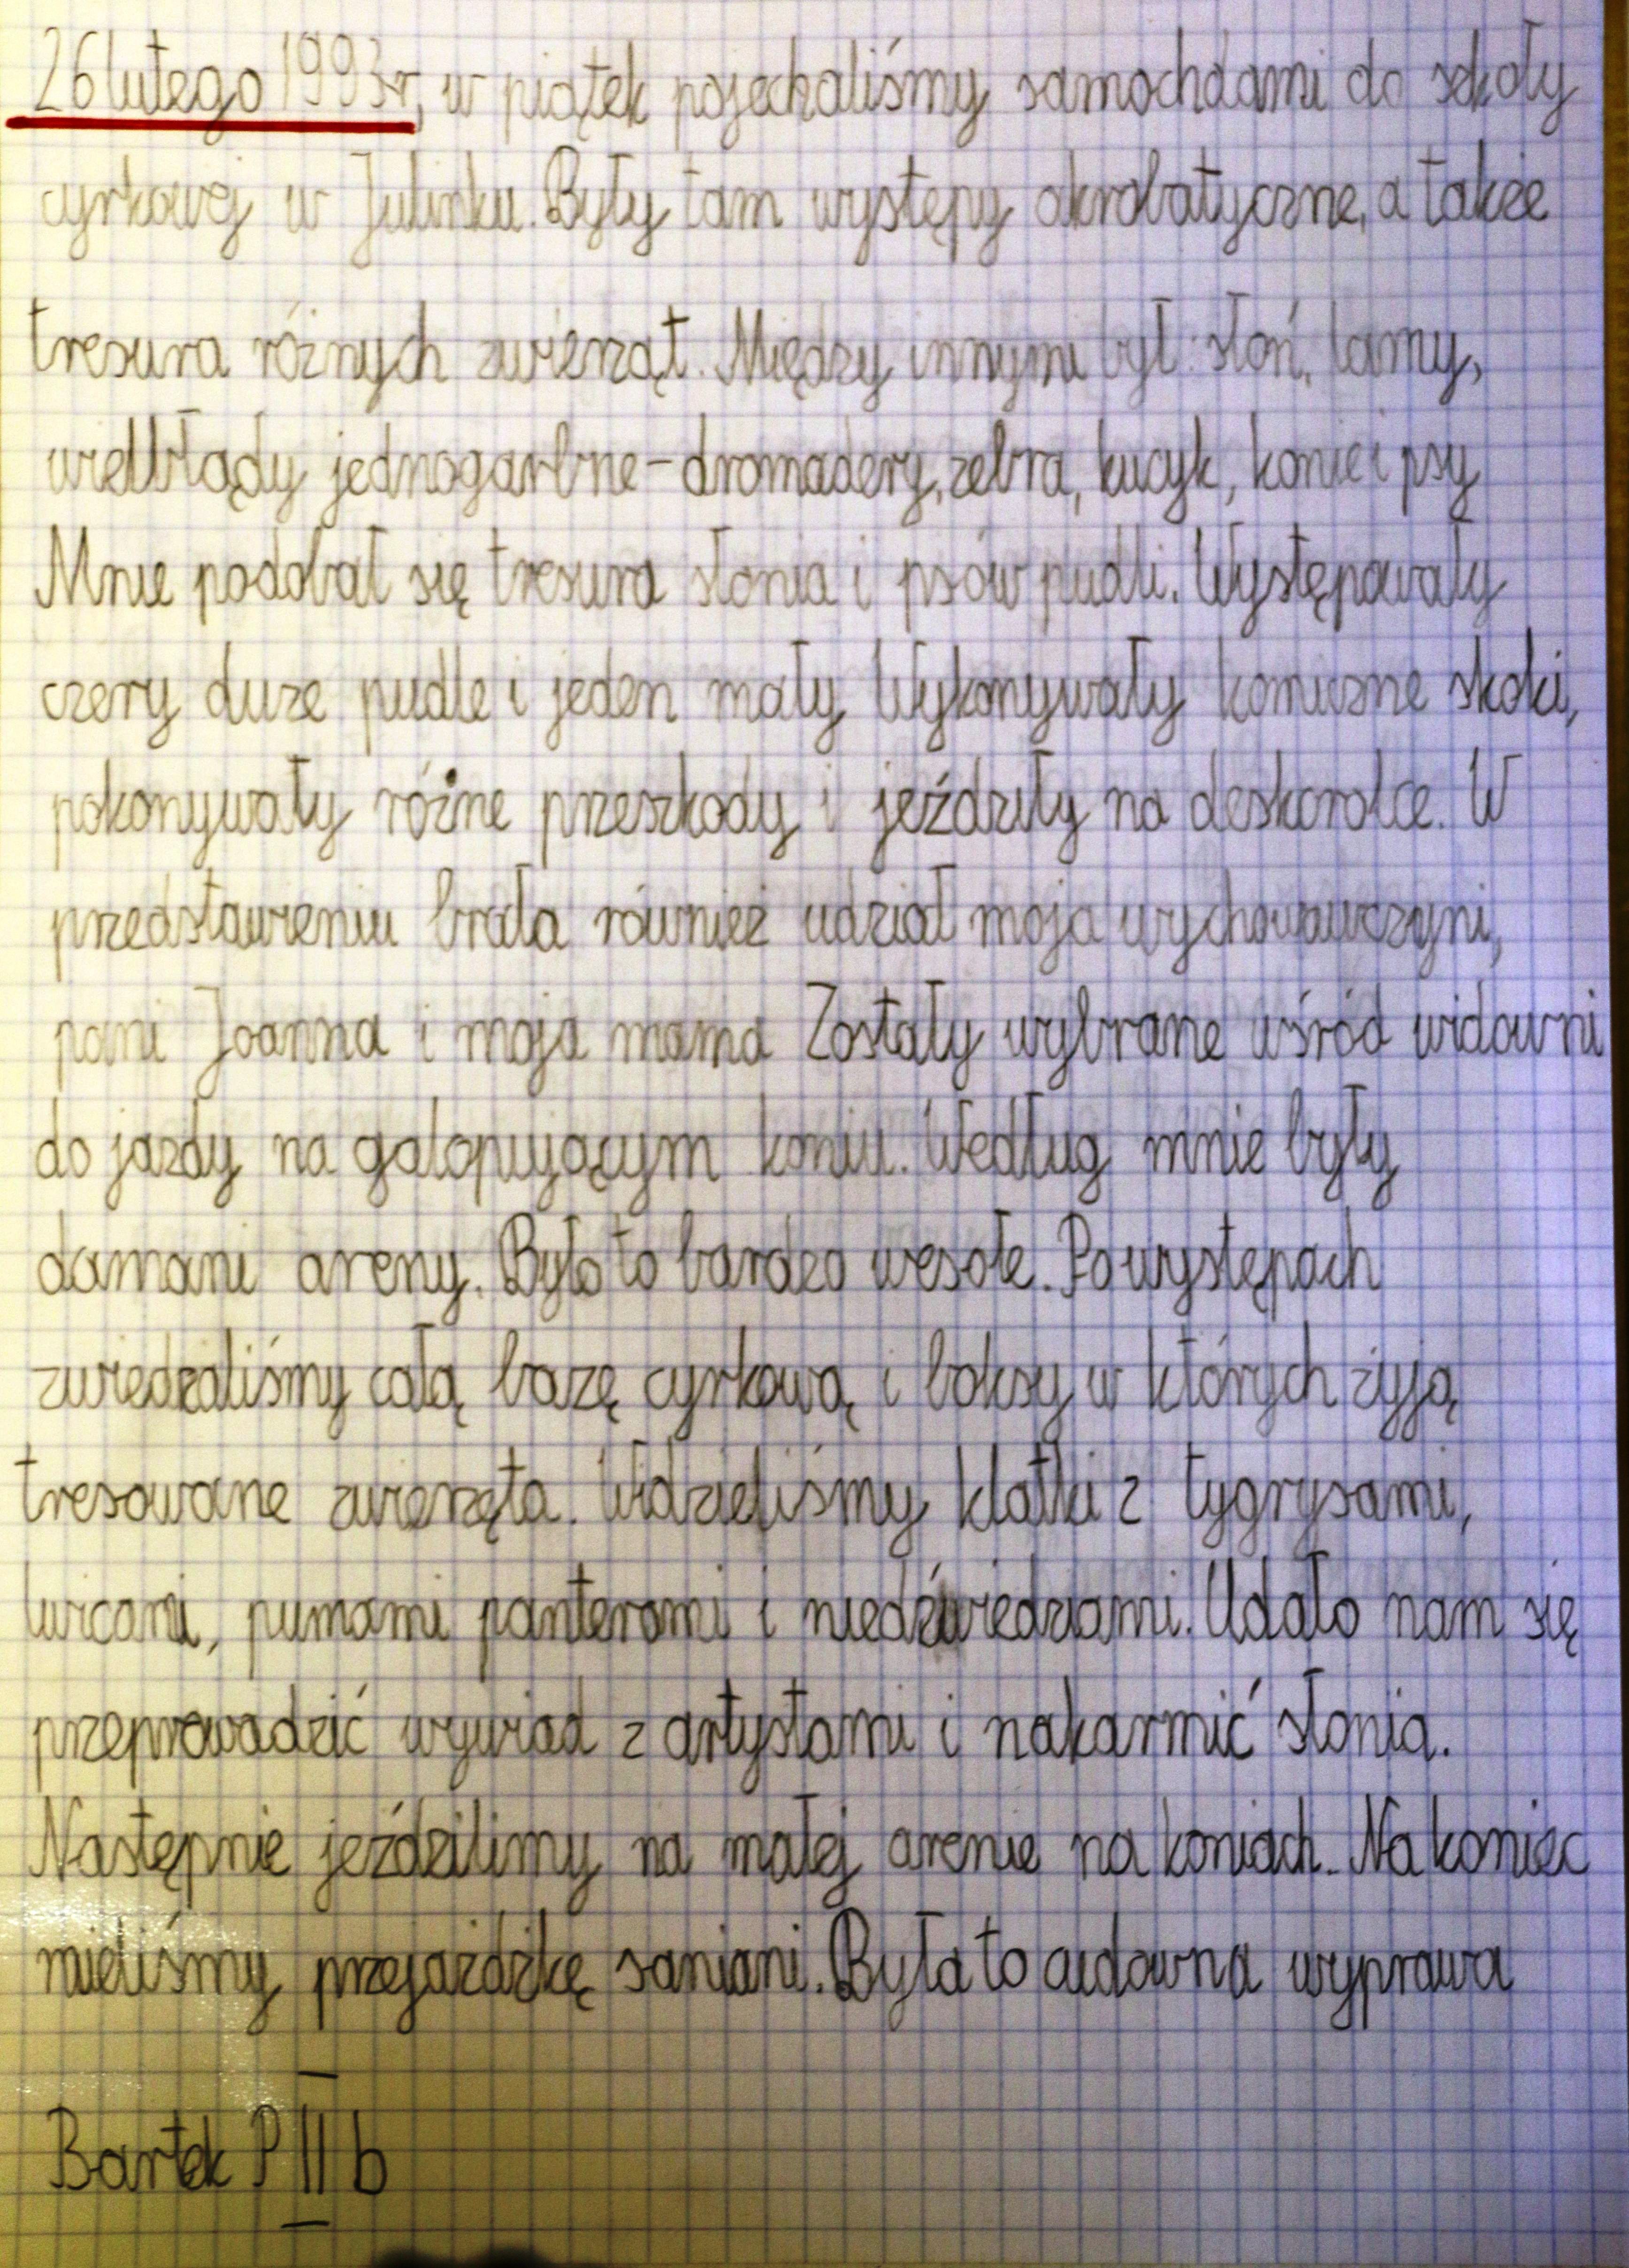 26 lutego 1993r, w piątek pojechaliśmy samochdami do szkoły
cyrkowej w Julinku. Były tam występy akrobatyczne, a także
tresura różnych zwierząt. Między innymi był: słoń, lamy,
wielbłądy jednogarbne - dromadery, zebra, kucyk, konie i psy
Mnie podobał się tresura słonia i psów pudli. Występowały
czery duże pudle i jeden mały Wykonywały koniczne skoki,
pokonywały różne przeszkody i jeździły na deskorolce. W
przedstawieniu brała również udział moja wychowawczyni,
pani Joanna i moja mama Zostały wybrane wśród widowni
do jazdy na galopującym koniu. Według mnie były
damami areny. Było to bardzo wesołe. Po występach
zwiedzaliśmy całą bazę cyrkową i boksy w których żyją
tresowane zwierzęta. Widzieliśmy klatki z tygrysami,
lwicami, pumami panterami i niedźwiedziami. Udało nam się
przeprowadzić wywiad z artystami i nakarmić słonia.
Następnie jeździlimy na małej arenie na koniach. Na koniec
mieliśmy przejażdżkę saniani. Była to cudowna wyprawa
Bartek P II b